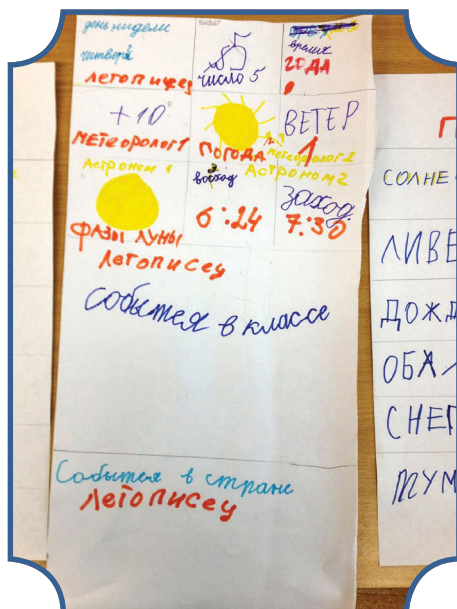 день недели
четверг
летописец
число 5
время
года
+10°
метеоролог1
погода
ВЕТЕР
1
метеоролог2
Астроном 1
фазы луны
восход
6:24
Астроном2
заход
7:30
Летописец
События в классе
Событея в стране
Летописец
П
СОЛНЕ
ЛИВЕ
ДОЖД
ОБЛ
СНЕГ
ТУМ